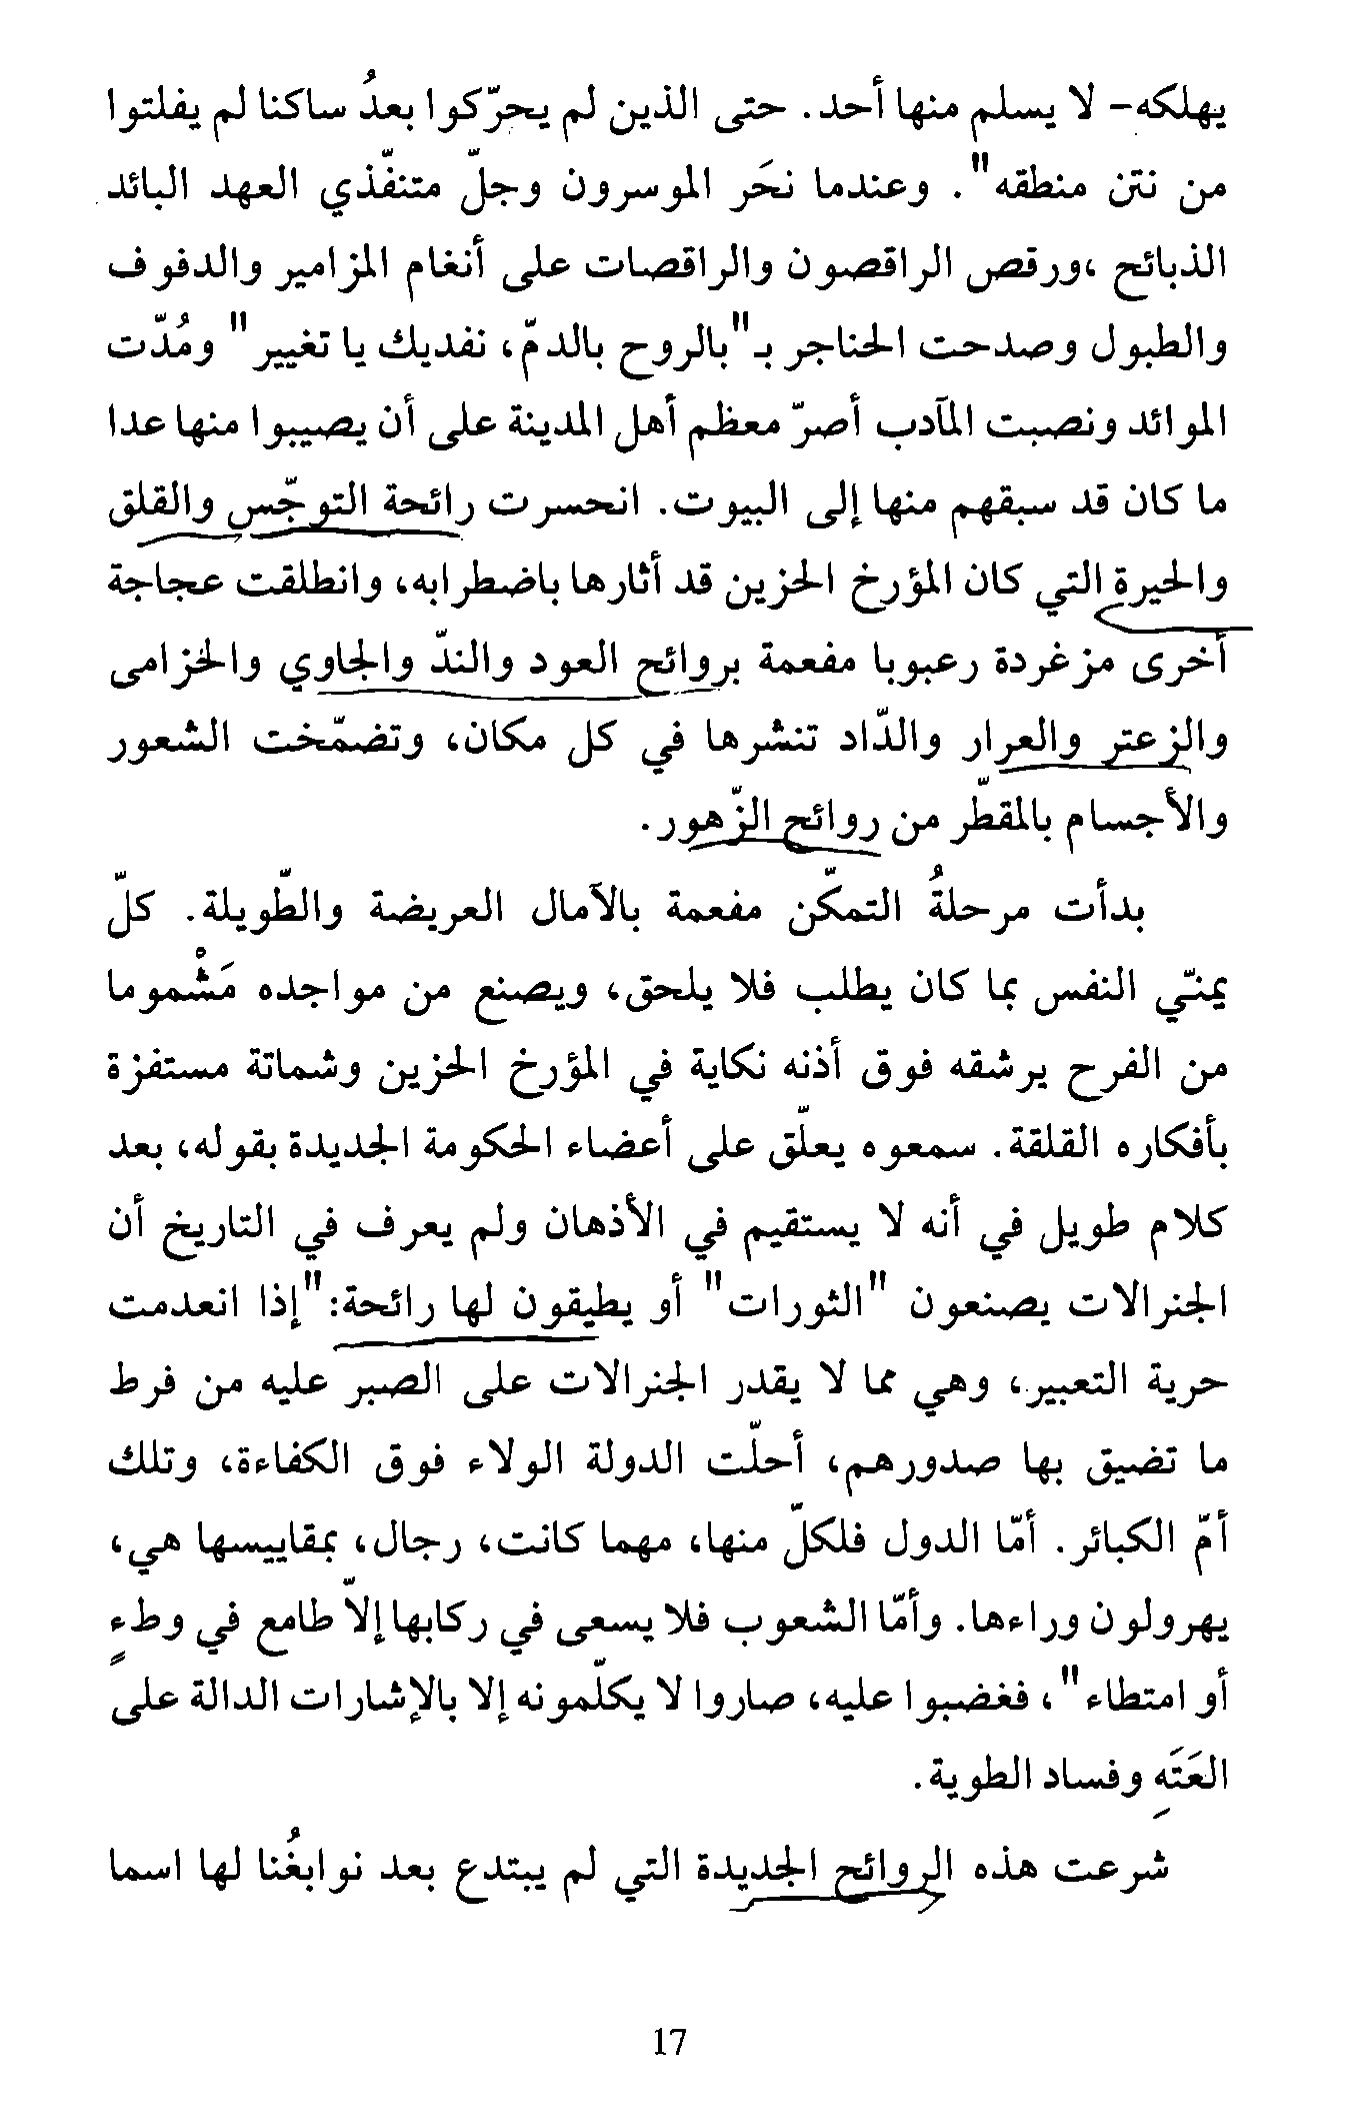 يهلكه- لا يسلم منها أحد. حتى الذين لم يحرّكوا بعدُ ساكنا لم يفلتوا
من نتن منطقه". وعندما نحَر الموسرون وجلّ متنفّذي العهد البائد
الذبائح ،ورقص الراقصون والراقصات على أنغام المزامير والدفوف
والطبول وصدحت الحناجر بـ"بالروح بالدمّ، نفديك يا تغيير" ومُدّت
الموائد ونصبت المآدب أصرّ معظم أهل المدينة على أن يصيبوا منها عدا
ما كان قد سبقهم منها إلى البيوت. انحسرت رائحة التوجّس والقلق
والحيرة التي كان المؤرخ الحزين قد أثارها باضطرابه، وانطلقت عجاجة
أخرى مزغردة رعبوبا مفعمة بروائح العود والندّ والجاوي والخزامى
والزعتر والعرار والدّاد تنشرها في كل مكان، وتضمّخت الشعور
والأجسام بالمقطّر من روائح الزّهور.
بدأت مرحلةُ التمكّن مفعمة بالآمال العريضة والطّويلة. كلّ
يمنّي النفس بما كان يطلب فلا يلحق، ويصنع من مواجده مَشْموما
من الفرح يرشقه فوق أذنه نكاية في المؤرخ الحزين وشماتة مستفزة
بأفكاره القلقة. سمعوه يعلّق على أعضاء الحكومة الجديدة بقوله، بعد
كلام طويل في أنه لا يستقيم في الأذهان ولم يعرف في التاريخ أن
الجنرالات يصنعون "الثورات" أو يطيقون لها رائحة:"إذا انعدمت
حرية التعبير، وهي مما لا يقدر الجنرالات على الصبر عليه من فرط
ما تضيق بها صدورهم، أحلّت الدولة الولاء فوق الكفاءة، وتلك
أمّ الكبائر. أمّا الدول فلكلّ منها، مهما كانت، رجال، بمقاييسها هي،
يهرولون وراءها. وأمّا الشعوب فلا يسعى في ركابها إلاّ طامع في وطءٍ
أو امتطاء"، فغضبوا عليه، صاروا لا يكلّمونه إلا بالإشارات الدالة على
العَتَهِ وفساد الطوية.
شرعت هذه الروائح الجديدة التي لم يبتدع بعد نوابغُنا لها اسما
17